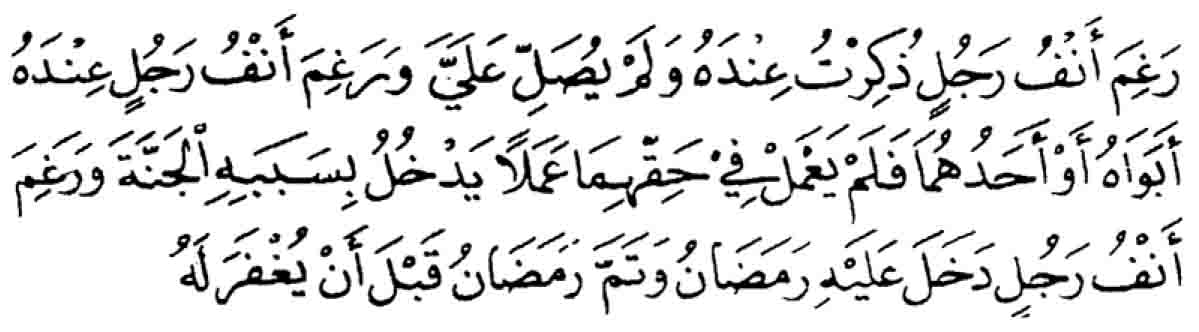 رَغِمَ أَنْفُ رَجُلٍ ذُكِرْتُ عِنْدَهُ وَلَمْ يُصَلِّ عَلَيَّ وَرَغِمَ أَنْفُ رَجُلٍ عِنْدَهُ
أَبَوَاهُ أَوْ أَحَدُهُمَا فَلَمْ يَعْمَلْ فِيْ حَقِّهِمَا عَمَلًا يَدْخُلُ بِسَبَبِهِ الْجَنَّةَ وَرَغِمَ
أَنْفُ رَجُلٍ دَخَلَ عَلَيْهِ رَمَضَانُ وَتَمَّ رَمَضَانُ قَبْلَ أَنْ يُغْفَرَ لَهُ